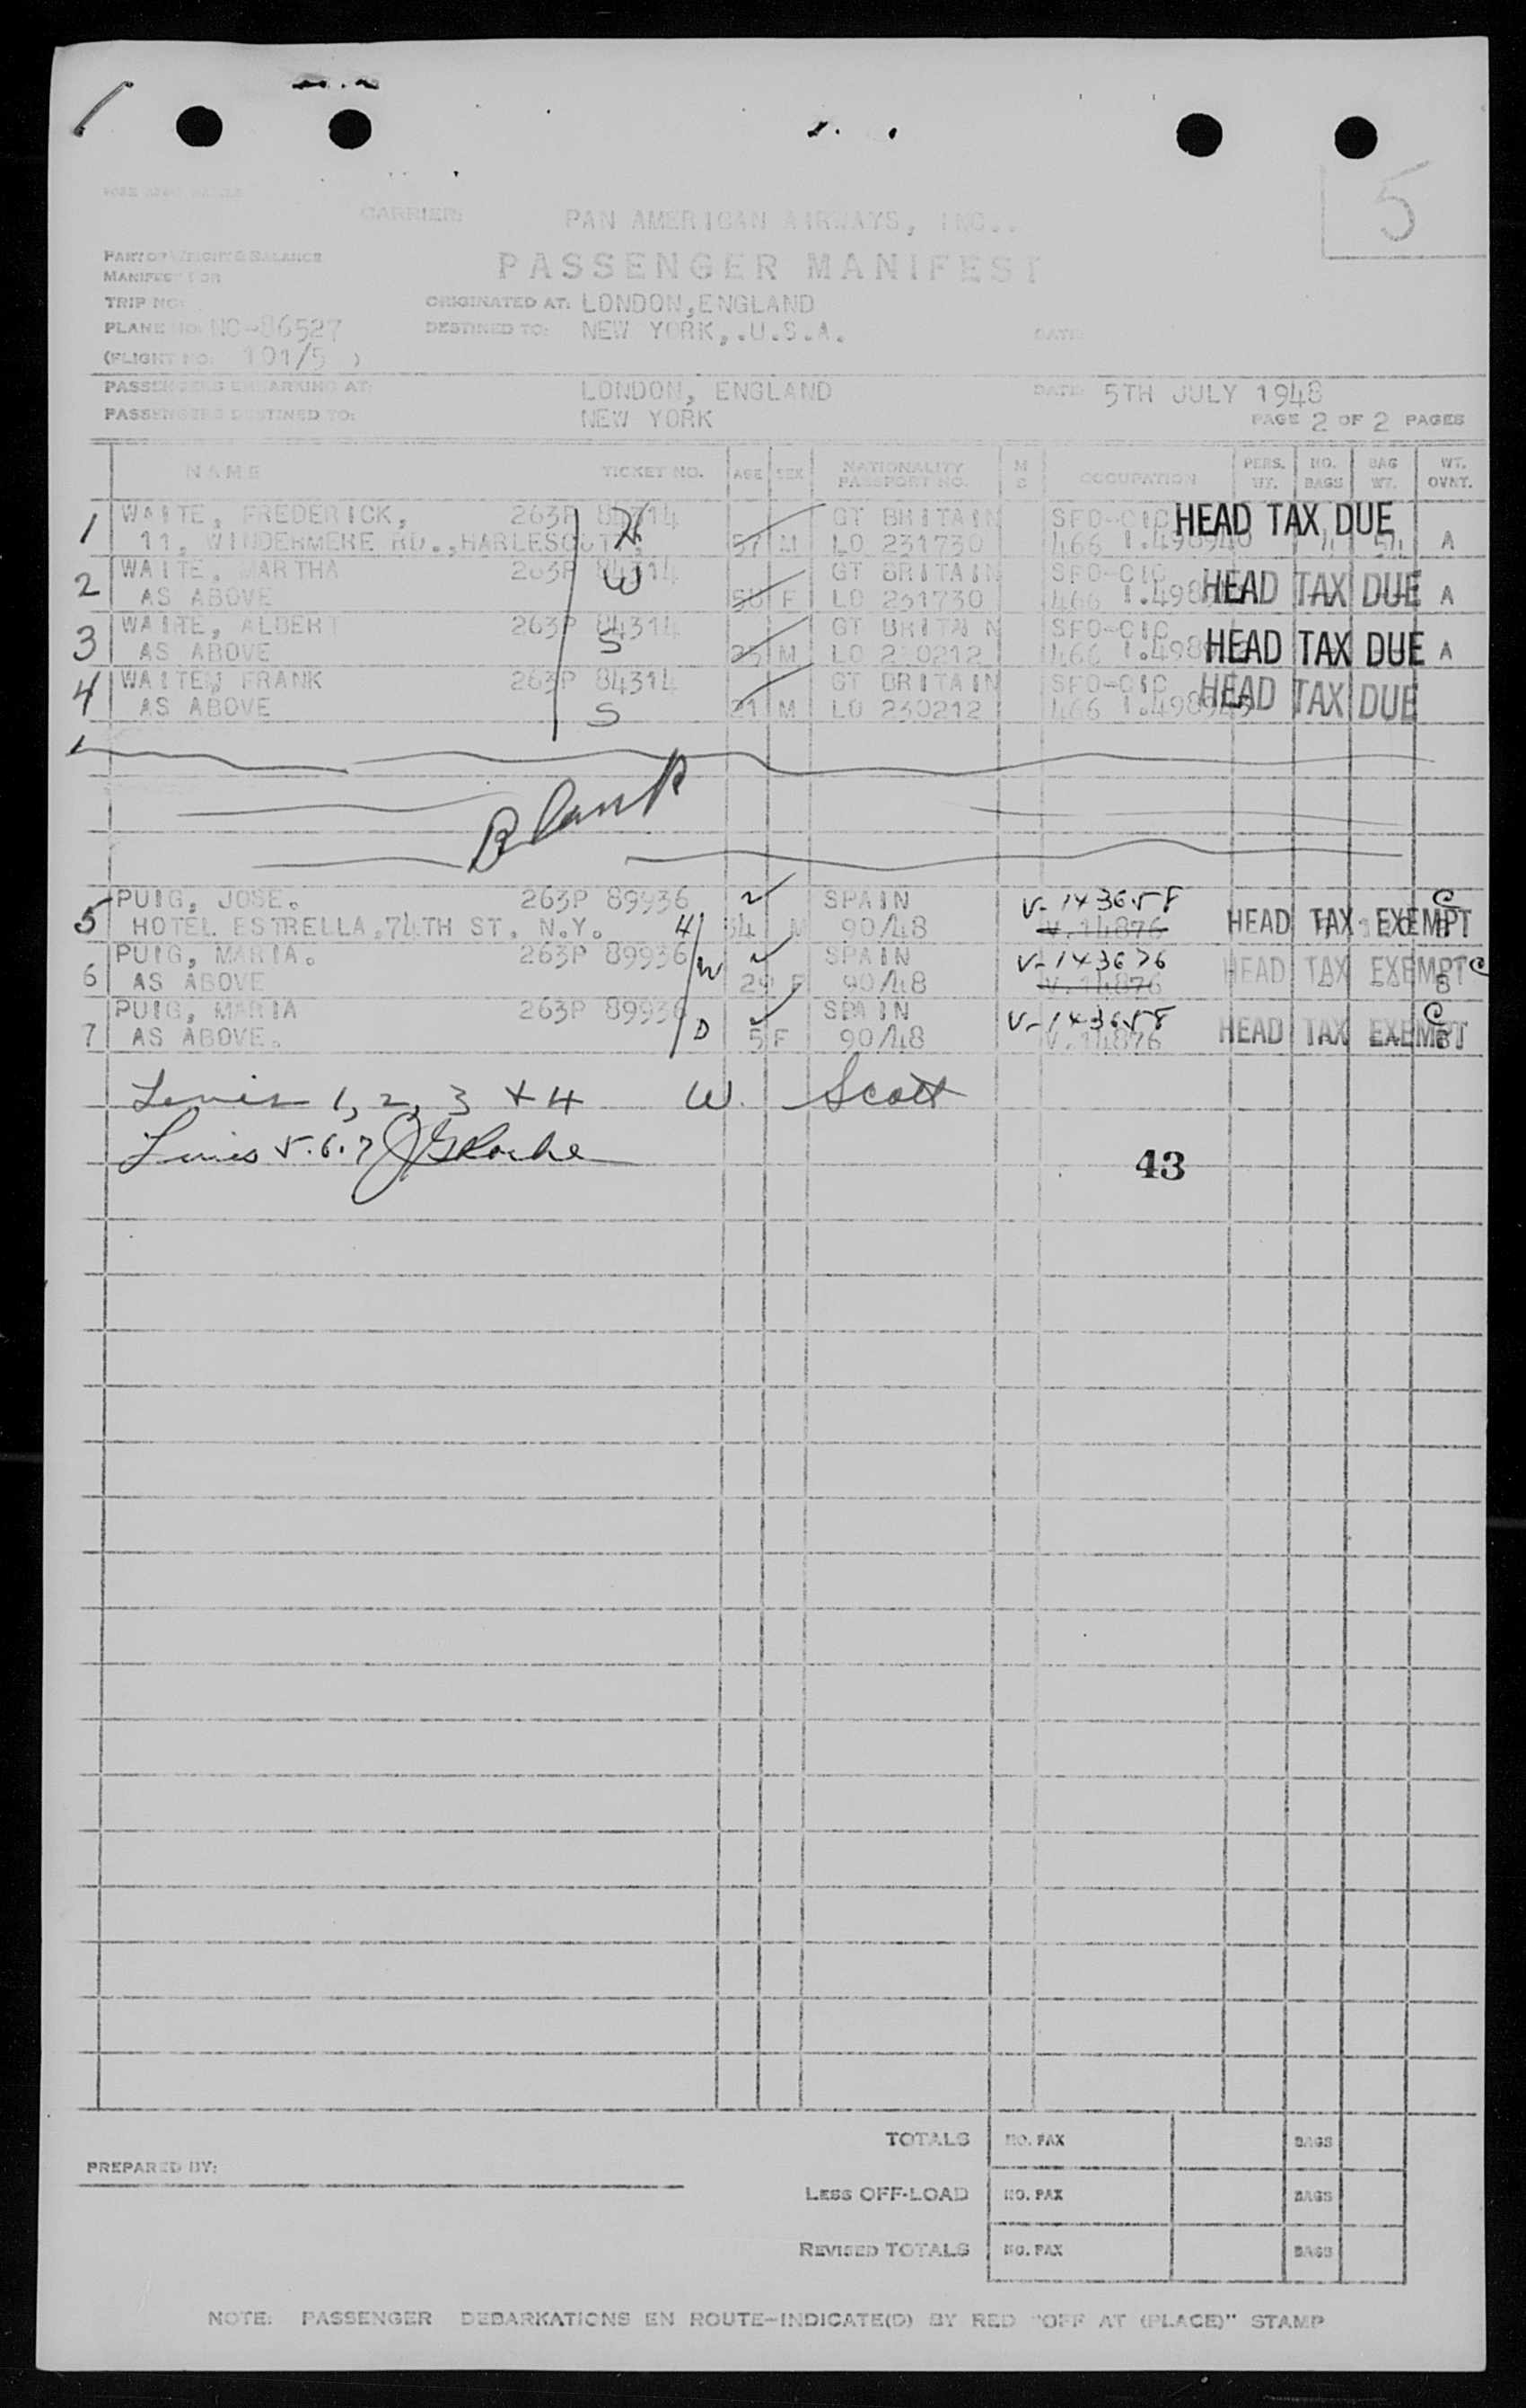 5
CARRIER: PAN AMERICAN AIRWAYS, INC..
PART OF WEIGHT & BALANCE
MANIFEST FOR
PASSENGER MANIFEST
TRIP NO: ORIGINATED AT: LONDON,ENGLAND
PLANE NO: NC-86527 DESTINED TO: NEW YORK,.U.S.A. DATE:
(FLIGHT NO: 101/5 )
PASSENGERS EMBARKING AT: LONDON, ENGLAND DATE: 5TH JULY 1948
PASSENGERS DESTINED TO: NEW YORK PAGE 2 OF 2 PAGES
NAME TICKET NO. AGE SEX NATIONALITY PASSPORT NO. M C OCCUPATION PERS. WT. NO. BAGS BAG WT. WT. OVNT.
1 WAITE, FREDERICK, 263P 84314 H GT BRITAIN SFO-CIC HEAD TAX DUE
11, WINDERMERE RD.,HARLESCOTT, 57 M LO 231730 466 4 54 A
2 WAITE, MARTHA 263P 84314 W GT BRITAIN SFO-CIC HEAD TAX DUE
AS ABOVE F LO 231730 466 A
3 WAITE, ALBERT 263P 84314 S GT BRITAIN SFO-CIC HEAD TAX DUE
AS ABOVE M LO 230212 466 A
4 WAITE, FRANK 263P 84314 GT BRITAIN SFO-CIC HEAD TAX DUE
AS ABOVE S 21 M LO 230212 466
Blank
5 PUIG, JOSE. 263P 89936 SPAIN V-143658 C
HOTEL ESTRELLA.74TH ST. N.Y. H 34 M 90/48 V.14876 HEAD TAX EXEMPT
PUIG, MARIA. 263P 89936 W SPAIN V-143676 HEAD TAX EXEMPT C
6 AS ABOVE 29 F 90/48 V.14876 B
PUIG, MARIA 263P 89936 SPAIN V-143658 C
7 AS ABOVE. D 5 F 90/48 V.14876 HEAD TAX EXEMPT
Lines 1, 2, 3 + 4 W. Scott
Lines 5.6.7
43
TOTALS NO. PAX BAGS
PREPARED BY:
LESS OFF-LOAD NO. PAX BAGS
REVISED TOTALS NO. PAX BAGS
NOTE: PASSENGER DEBARKATIONS EN ROUTE-INDICATE(D) BY RED "OFF AT (PLACE)" STAMP